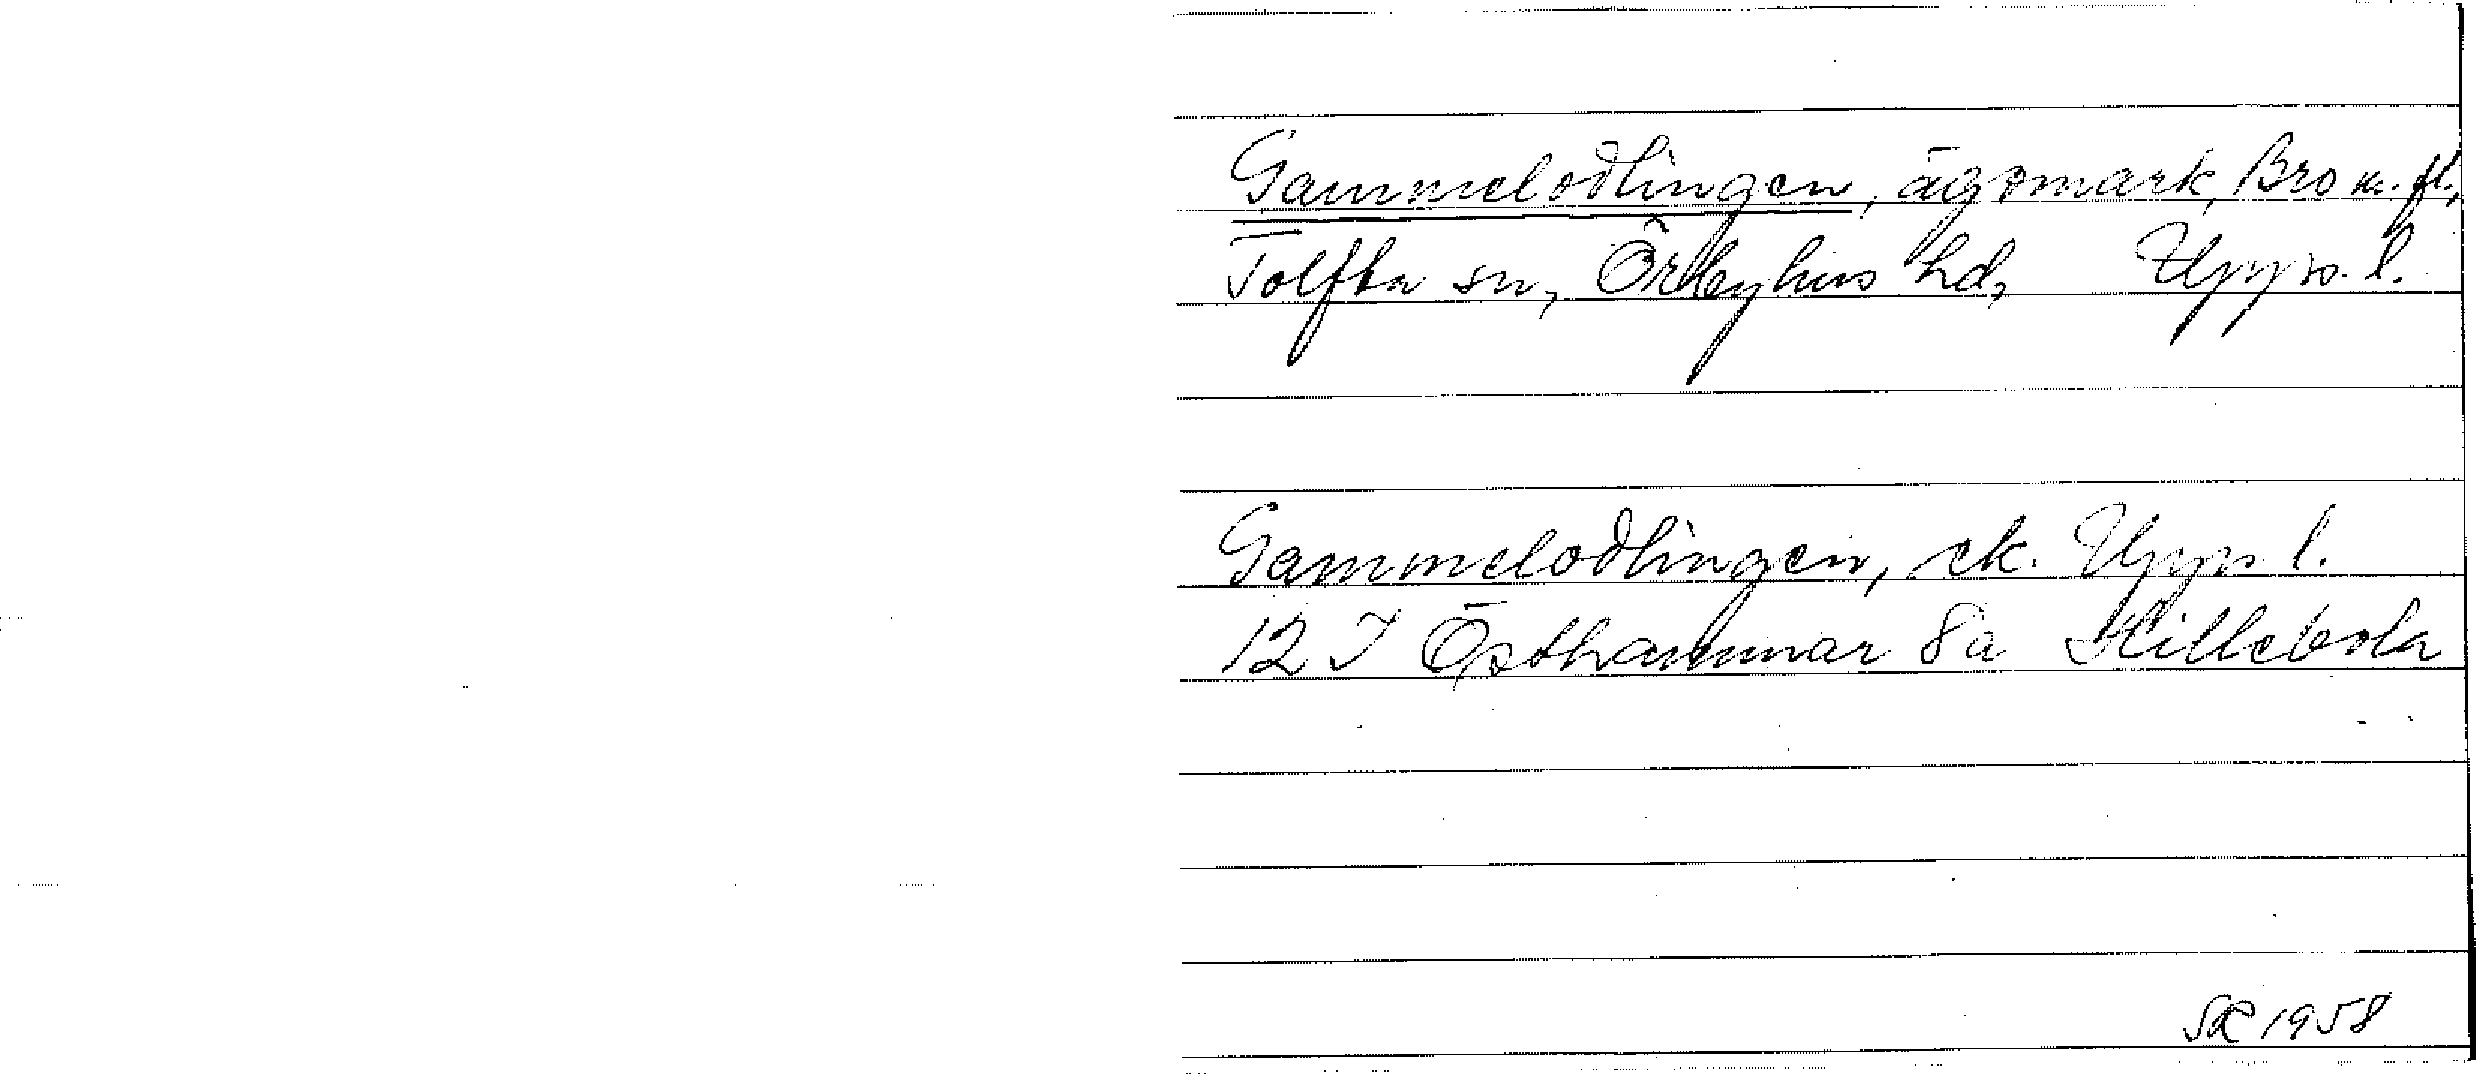 Gammelodlingen, ägomark, Bro m. fl.,
Tolfta sn, Örbyhus hd, Upps. l.
Gammelodlingen, ek. Upps l.
12 I Östhammar 8a Hillebola
SR 1958